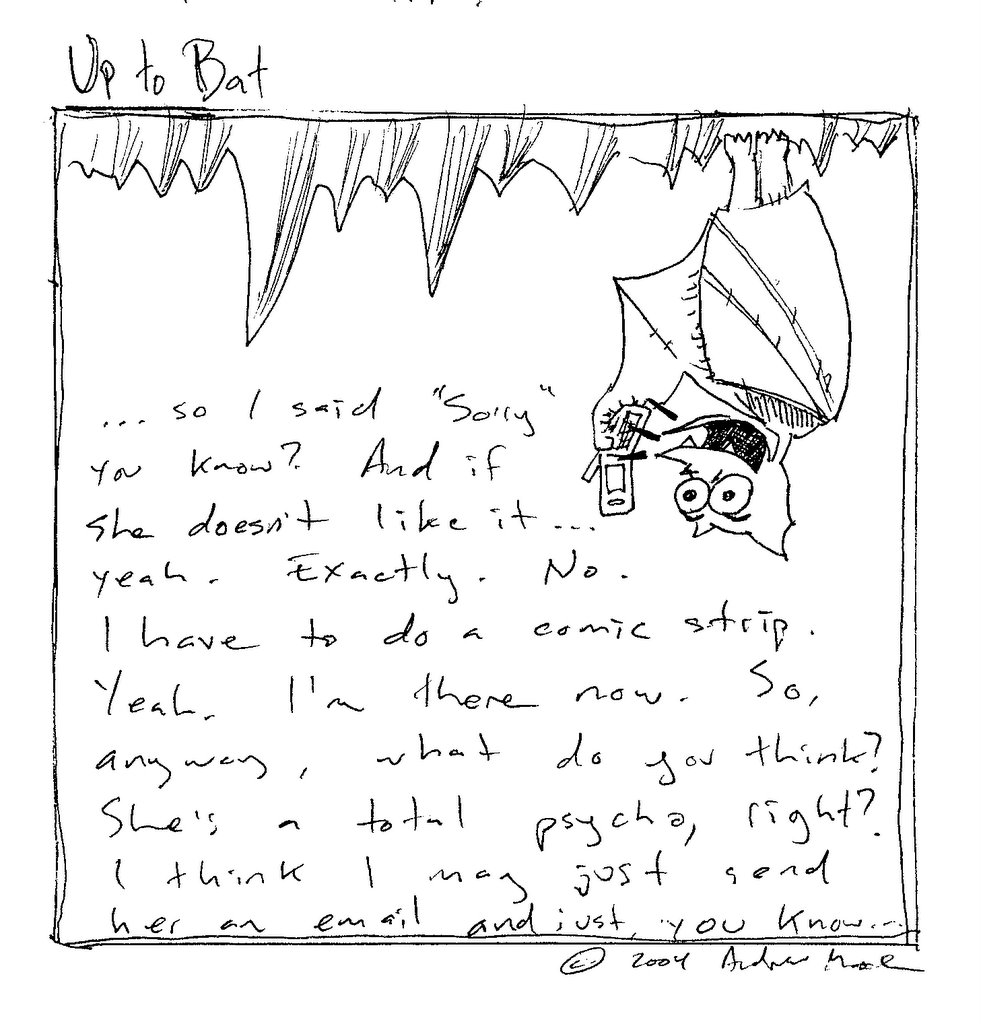 Up to Bat
... so I said "Sorry"
you know? And if
she doesn't like it...
yeah. Exactly. No.
I have to do a comic strip.
Yeah. I'm there now. So,
anyway, what do you think?
She's a total psycho, right?
I think I may just send
her an email and just, you know...
© 2004 Andrew